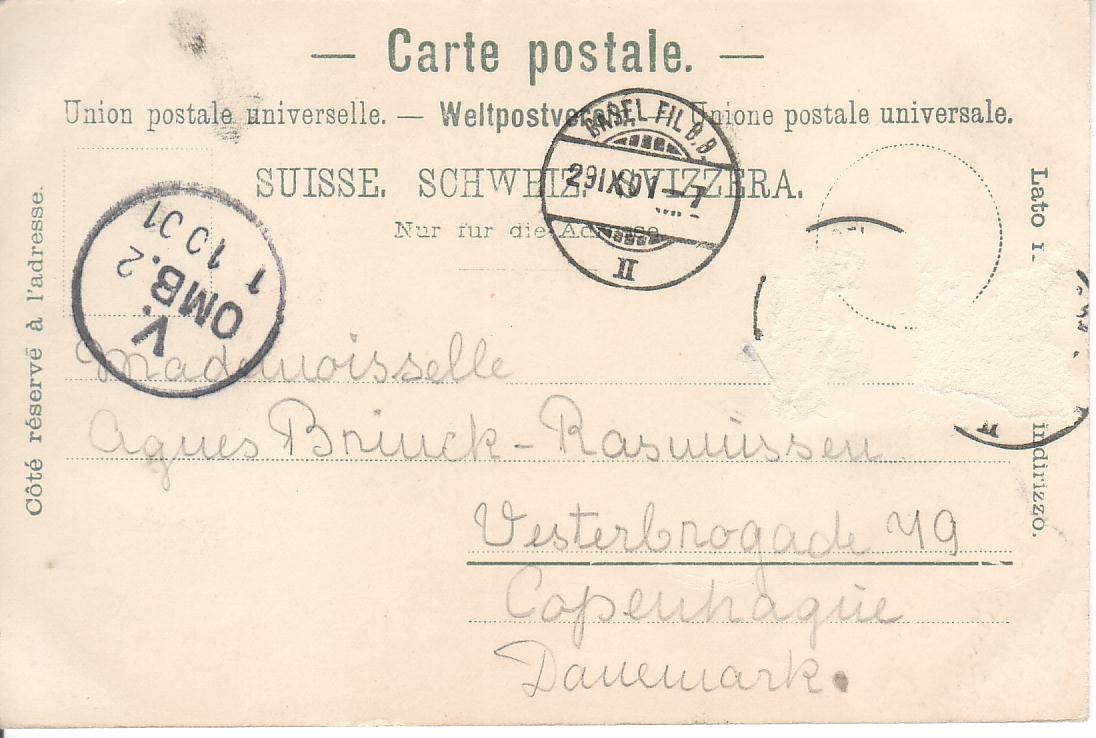 — Carte postale. —
Union postale universelle. — Weltpostverein. — Unione postale universale.
SUISSE. SCHWEIZ. SVIZZERA.
Nur für die Adresse
Côté réservé à l'adresse.
Lato r indirizzo.
BASEL FIL. B.B.
29 IX 01 – 7
II
V.
OMB. 2
1 10 01
Mademoisselle
Agnes Brinck-Rasmüssen
Vesterbrogade 79
Copenhagüe
Danemark.